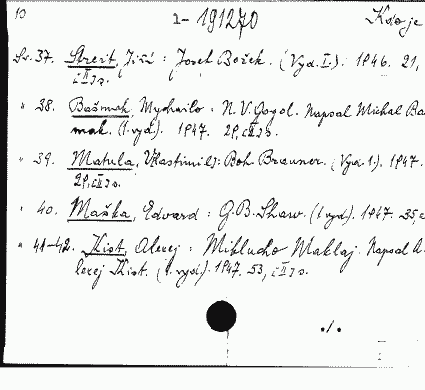 10 1-191270 Kdo je
Sv. 37. Streit, Jiří: Josef Božek. (Vyd. I.). 1946. 21,
" 38. Bašmak, Mychailo: N. V. Gogol. Napsal Michal Baš
mak. (1. vyd.). 1947. 29,
" 39. Matula, Vlastimil: Boh. Brauner. (Vyd. 1.). 1947.
29,
" 40. Maška, Edvard: G. B. Shaw. (1. vyd.). 1947. 35,
" 41-42. Kist, Alexej: Miklucho Maklaj. Napsal A-
lexej Kist. (1. vyd.). 1947. 53,
./.